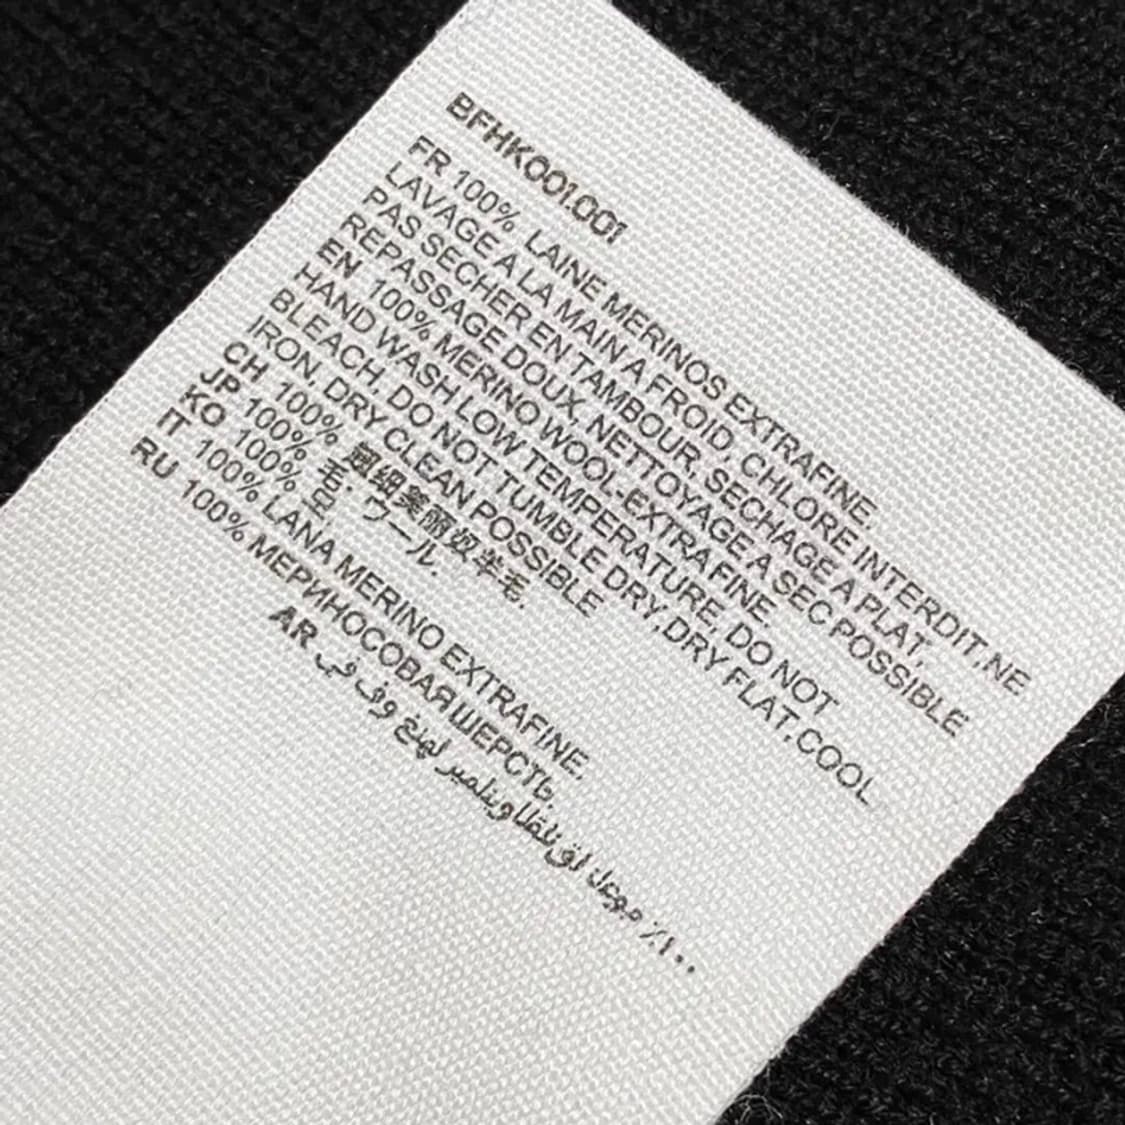 BFHK001.001
FR 100% LAINE MERINOS EXTRAFINE.
LAVAGE A LA MAIN A FROID, CHLORE INTERDIT,NE
PAS SECHER EN TAMBOUR, SECHAGE A PLAT,
REPASSAGE DOUX, NETTOYAGE A SEC POSSIBLE
EN 100% MERINO WOOL-EXTRA FINE.
HAND WASH LOW TEMPERATURE, DO NOT
BLEACH, DO NOT TUMBLE DRY,DRY FLAT,COOL
IRON, DRY CLEAN POSSIBLE
CH 100% 超细美丽奴羊毛.
JP 100% 毛. ウール.
KO 100% 모.
IT 100% LANA MERINO EXTRAFINE.
RU 100% МЕРИНОСОВАЯ ШЕРСТЬ.
AR